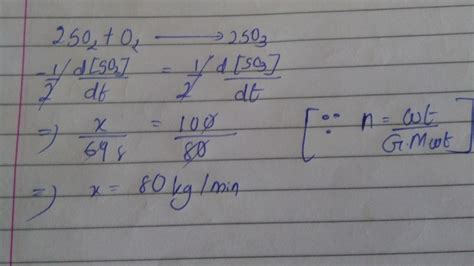 2SO₂ + O₂ ⟶ 2SO₃
-1/2 d[SO₂]/dt = 1/2 d[SO₃]/dt
⇒ x/64 = 100/80 [∵ n = wt/G.M wt]
⇒ x = 80 kg/min